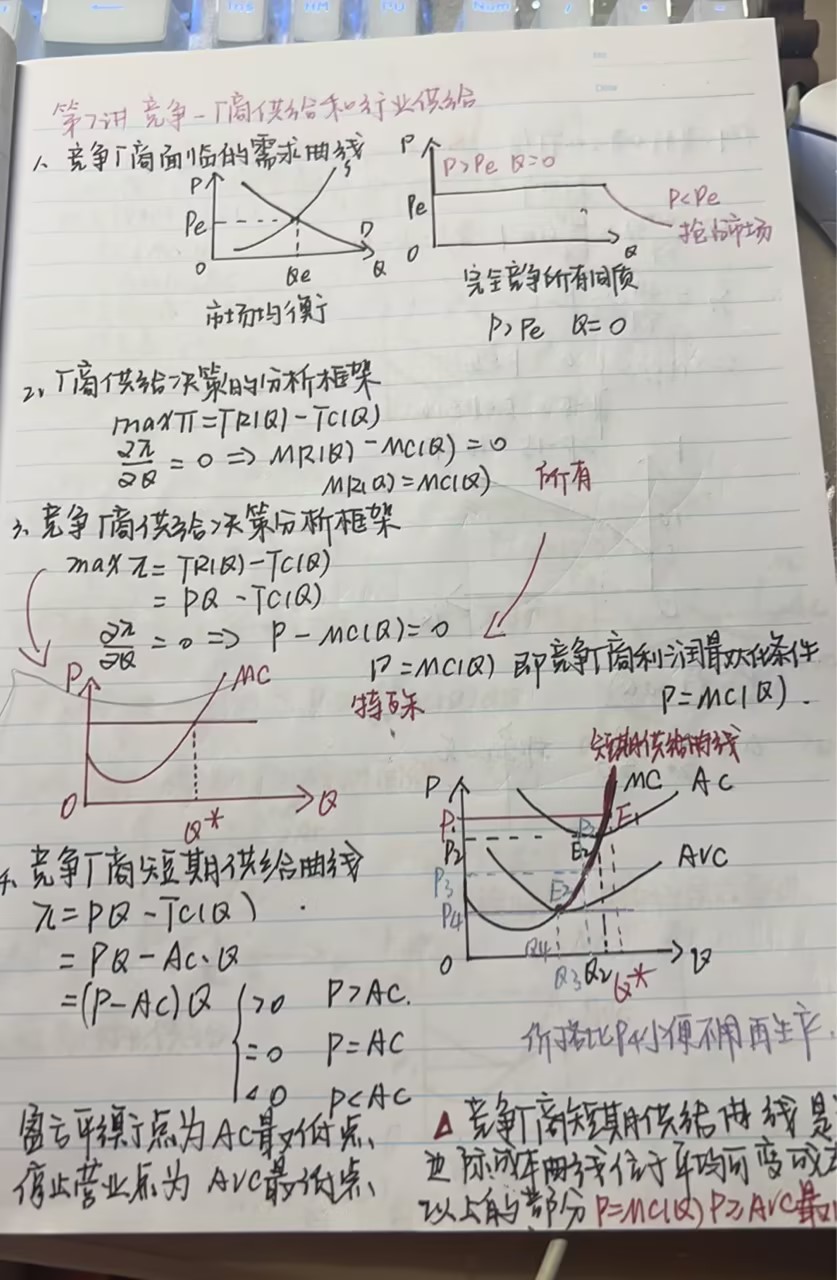 第7讲 竞争-厂商供给和行业供给
1、竞争厂商面临的需求曲线
P
S
Pe
D
O
Qe
Q
市场均衡
P
P>Pe Q=0
Pe
P<Pe
抢占市场
O
Q
完全竞争所有同质
P>Pe Q=0
2、厂商供给决策的分析框架
maxπ=TR(Q)-TC(Q)
∂π/∂Q=0⇒MR(Q)-MC(Q)=0
MR(Q)=MC(Q)
所有
3、竞争厂商供给决策分析框架
maxπ=TR(Q)-TC(Q)
=PQ-TC(Q)
∂π/∂Q=0⇒P-MC(Q)=0
P=MC(Q) 即竞争厂商利润最大化条件
特殊
P=MC(Q).
P
MC
O
Q*
Q
短期供给曲线
P
MC
AC
P1
E1
P2
E2
AVC
P3
E3
P4
O
Q4
Q3 Q2 Q*
Q
价格比P4小便不用再生产
4、竞争厂商短期供给曲线
π=PQ-TC(Q)
=PQ-AC·Q
=(P-AC)Q
>0 P>AC.
=0 P=AC
<0 P<AC
盈亏平衡点为AC最低点、
停止营业点为AVC最低点、
△竞争厂商短期供给曲线是
边际成本曲线位于平均可变成本
以上的部分 P=MC(Q) P≥AVC最